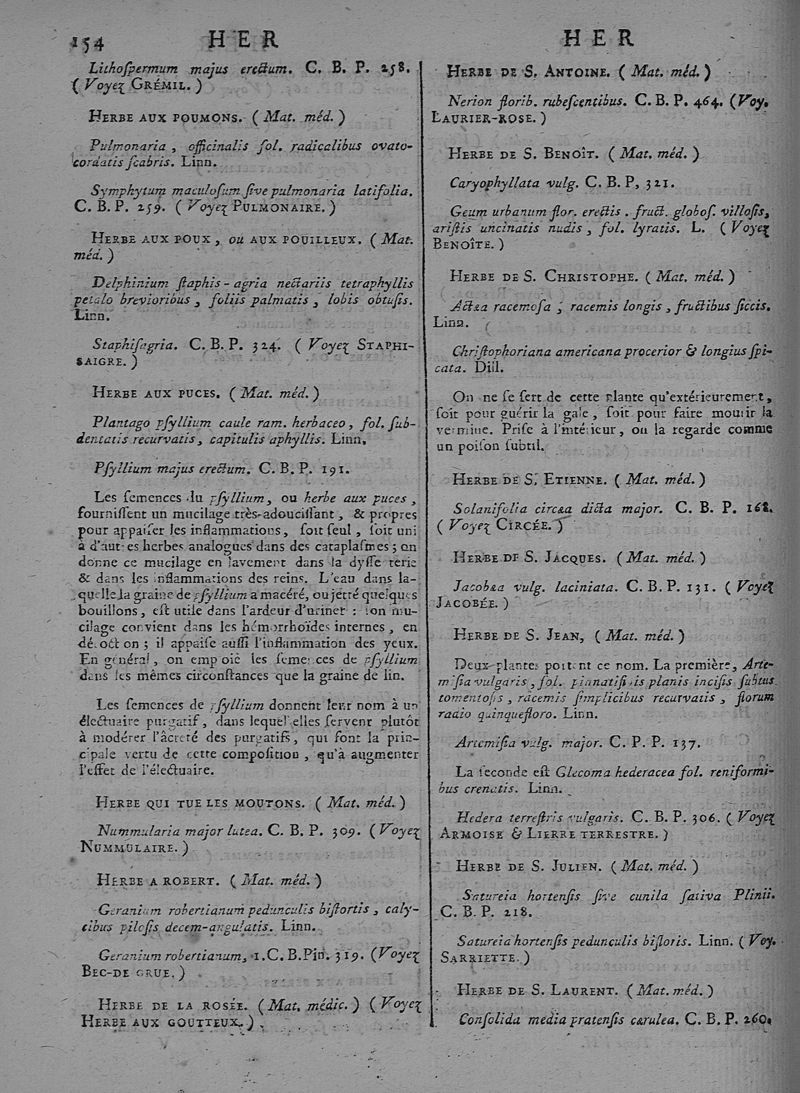 154 HER
Lithoſpermum majus erectum. C. B. P. 258.
( Voyez GRÉMIL. )
HERBE AUX POUMONS. ( Mat. méd. )
Pulmonaria, officinalis fol. radicalibus ovato-
cordatis ſcabris. Linn.
Symphytum maculoſum ſive pulmonaria latifolia.
C. B. P. 259. ( Voyez PULMONAIRE. )
HERBE AUX POUX, ou AUX POUILLEUX. ( Mat.
méd. )
Delphinium ſtaphis-agria nectariis tetraphyllis
petalo brevioribus, foliis palmatis, lobis obtuſis.
Linn.
Staphiſagria. C. B. P. 324. ( Voyez STAPHI-
SAIGRE. )
HERBE AUX PUCES. ( Mat. méd. )
Plantago pſyllium caule ram. herbaceo, fol. ſub-
dentatis recurvatis, capitulis aphyllis. Linn.
Pſyllium majus erectum. C. B. P. 191.
Les ſemences du pſyllium, ou herbe aux puces,
fourniſſent un mucilage très-adouciſſant, & propres
pour appaiſer les inflammations, ſoit ſeul, ſoit uni
à d'autres herbes analogues dans des cataplaſmes ; on
donne ce mucilage en lavement dans la dyſſenterie
& dans les inflammations des reins. L'eau dans la-
quelle la graine de pſyllium a macéré, ou jetté quelques
bouillons, eſt utile dans l'ardeur d'uriner : ſon mu-
cilage convient dans les hémorrhoïdes internes, en
décoction ; il appaiſe auſſi l'inflammation des yeux.
En général, on emploie les ſemences de pſyllium
dans les mêmes circonſtances que la graine de lin.
Les ſemences de pſyllium donnent leur nom à un
électuaire purgatif, dans lequel elles ſervent plutôt
à modérer l'âcreté des purgatifs, qui font la prin-
cipale vertu de cette compoſition, qu'à augmenter
l'effet de l'électuaire.
HERBE QUI TUE LES MOUTONS. ( Mat. méd. )
Nummularia major lutea. C. B. P. 309. ( Voyez
NUMMULAIRE. )
HERBE A ROBERT. ( Mat. méd. )
Geranium robertianum pedunculis biflortis, caly-
cibus piloſis decem-angulatis. Linn.
Geranium robertianum, 1. C. B. Pin. 319. (Voyez
BEC-DE GRUE. )
HERBE DE LA ROSÉE. ( Mat. médic. ) ( Voyez
HERBE AUX GOUTTEUX. )
HER
HERBE DE S. ANTOINE. ( Mat. méd. )
Nerion florib. rubeſcentibus. C. B. P. 464. (Voy.
LAURIER-ROSE. )
HERBE DE S. BENOÎT. ( Mat. méd. )
Caryophyllata vulg. C. B. P, 321.
Geum urbanum flor. erectis. fruct. globoſ. villoſis,
ariſtis uncinatis nudis, fol. lyratis. L. ( Voyez
BENOÎTE. )
HERBE DE S. CHRISTOPHE. ( Mat. méd. )
Actæa racemoſa ; racemis longis, fructibus ſiccis.
Linn.
Chriſtophoriana americana procerior & longius ſpi-
cata. Dill.
On ne ſe ſert de cette plante qu'extérieurement,
ſoit pour guérir la gale, ſoit pour faire mourir la
vermine. Priſe à l'intérieur, on la regarde comme
un poiſon ſubtil.
HERBE DE S. ETIENNE. ( Mat. méd. )
Solanifolia circæa dicta major. C. B. P. 168.
( Voyez CIRCÉE. )
HERBE DE S. JACQUES. ( Mat. méd. )
Jacobæa vulg. laciniata. C. B. P. 131. ( Voyez
JACOBÉE. )
HERBE DE S. JEAN, ( Mat. méd. )
Deux plantes portent ce nom. La première, Arte-
miſia vulgaris, fol. pinnatifidis planis inciſis ſubtus
tomentoſis, racemis ſimplicibus recurvatis, florum
radio quinquefloro. Linn.
Artemiſia vulg. major. C. P. P. 137.
La ſeconde eſt Glecoma hederacea fol. reniformi-
bus crenatis. Linn.
Hedera terreſtris vulgaris. C. B. P. 306. ( Voyez
ARMOISE & LIERRE TERRESTRE. )
HERBE DE S. JULIEN. ( Mat. méd. )
Satureia hortenſis ſive cunila ſativa Plinii.
C. B. P. 218.
Satureia hortenſis pedunculis bifloris. Linn. ( Voy.
SARRIETTE. )
HERBE DE S. LAURENT. ( Mat. méd. )
Conſolida media pratenſis cærulea. C. B. P. 260.